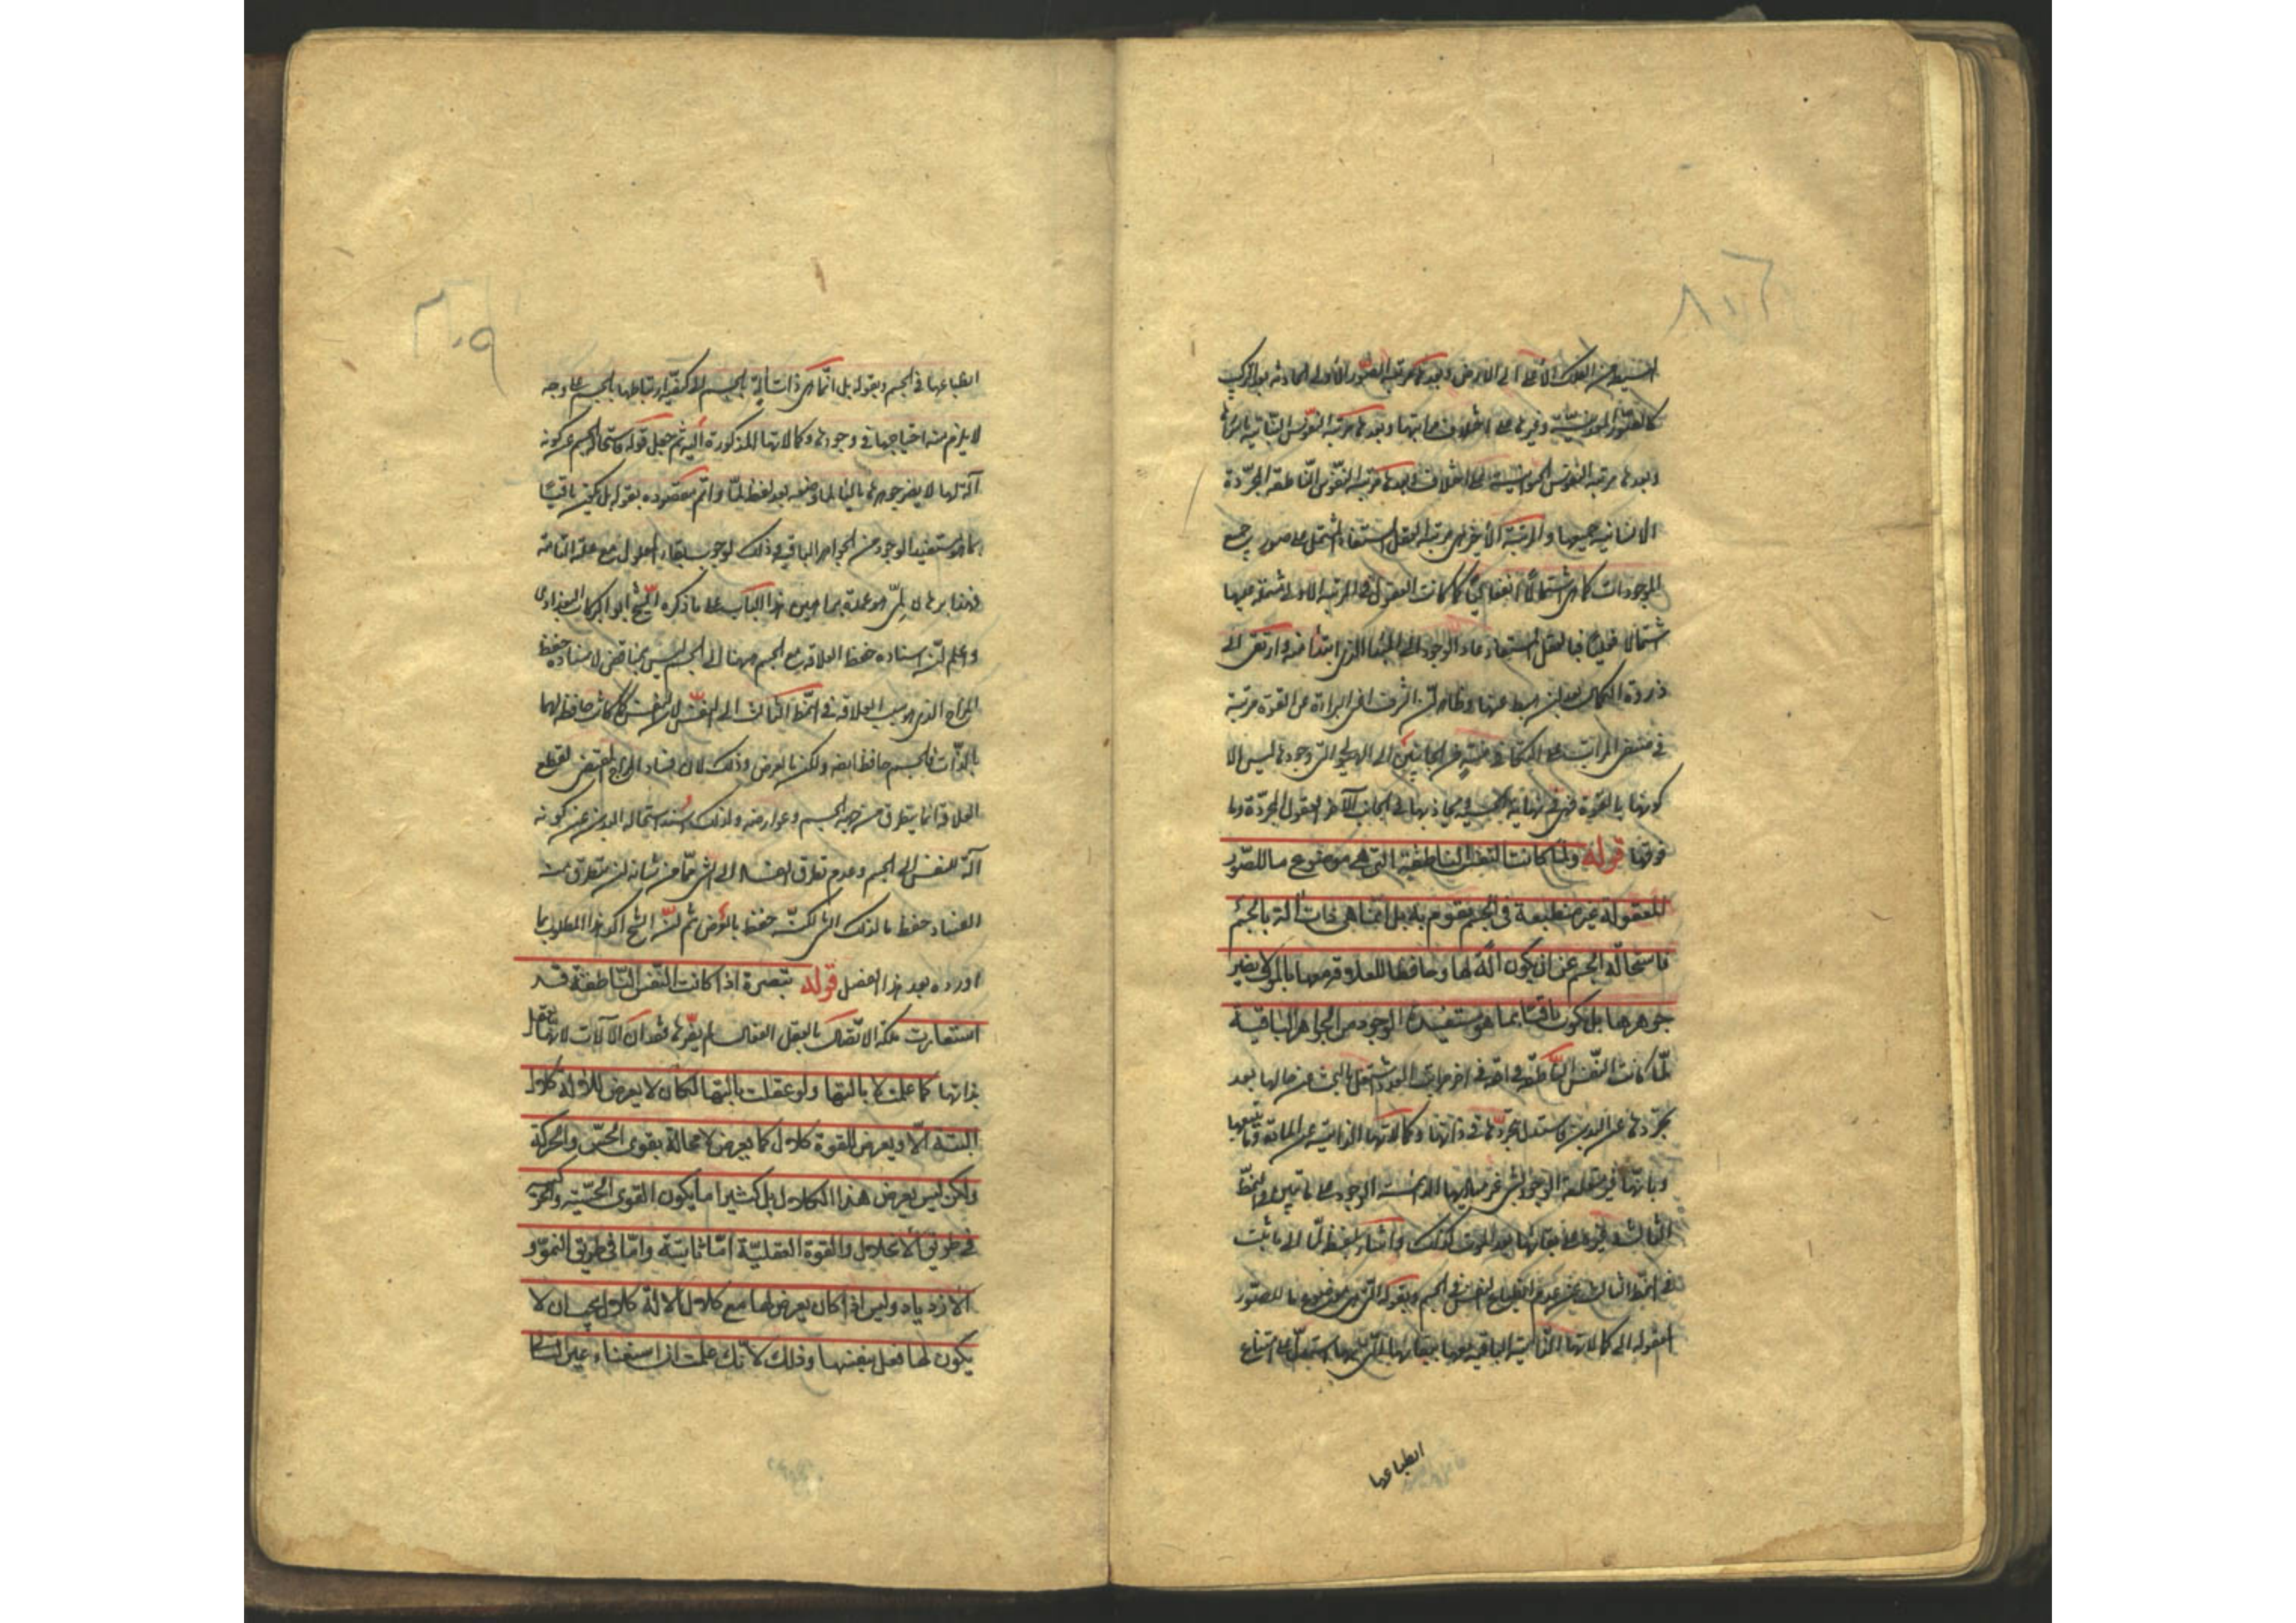 البسيطة من الفلك الأعلى الى الارض وبعدها مرتبة الصور الأولى الحادثة بعد التركيب
كالصور المعدنية وغيرها على اختلاف مراتبها وبعدها مرتبة النفوس النباتية باسرها
وبعدها مرتبة النفوس الحيوانية على اختلافها وبعدها مرتبة النفوس الناطقة المجردة
الانسانية جميعها والمرتبة الأخيرة هى مرتبة العقل المستفاد المشتمل على صور جميع
الموجودات كما هى اشتمالا انفعاليا كما كانت العقول فى المرتبة الاولى مشتملة عليها
اشتمالا فعليا فبالعقل المستفاد عاد الوجود الى المبدأ الذى ابتدأ منه وارتقى الى
ذروة الكمال بعد ان هبط عنها وظاهر ان الشرف اعنى البراءة عن القوة مرتبة
فى هذه المراتب على التكافى من الجانبين الى الهيولى التى وجودها ليس الا
كونها بالقوة فهى فى نهاية الخسة ويحاذيها فى الجانب الآخر العقول المجردة وما
فوقها قوله ولما كانت النفس الناطقة التى هى موضوع ما للصور
المعقولة غير منطبعة فى الجسم تقوم به بل انما هى ذات آلة بالجسم
فاستحالة الجسم عن ان يكون آلة لها وحافظا للعلاقة معها بالموت لا يضر
جوهرها بل يكون باقيا بما هو مستفيد الوجود من الجواهر الباقية
لما كانت النفس الناطقة واقعة فى آخر مراتب العود اشتغل بالبحث عن حالها بعد
تجردها عن البدن فاستدل بتجردها فى ذاتها وكمالاتها الذاتية عن المادة وما يتبعها
الثالث وغيره على بقائها بعد الموت كذلك واشار بلفظ لما الى ما ثبت
فى النمط الثالث من عدم انطباع النفس فى الجسم وبقوله التى هى موضوع ما للصور
المعقولة الى كمالاتها الذاتية الباقية معها
انطباعها
٣٠٩
انطباعها فى الجسم وبقوله بل انما هى ذات آلة بالجسم الى كيفية ارتباطها بالجسم على وجه
لا يلزم منه احتياجها فى وجودها وكمالاتها المذكورة اليه ثم جعل قوله فاستحالة الجسم عن كونه
آلة لها لا يضر جوهرها تاليا لما وضعه بعد لفظ لما واتم مقصوده بقوله بل يكون باقيا
بما هو مستفيد الوجود من الجواهر الباقية وذلك لوجوب بقاء المعلول مع علته التامة
فهذا برهان لمى هو عمدة براهين هذا الباب على ما ذكره الشيخ ابو البركات البغدادى
واعلم ان اسناده حفظ العلاقة مع الجسم ههنا الى الجسم ليس بمناقض لاسناده حفظ
المزاج الذى هو سبب العلاقة فى النمط الثالث الى النفس لان النفس كما كانت حافظة لهما
بالذات فالجسم حافظ ايضا ولكن بالعرض وذلك لان فساد المزاج المقتضى لقطع
العلاقة انما يتطرق من جهة الجسم وعوارضه ولذلك اسند استحالة البدن عن كونه
آلة للنفس الى الجسم وعدم تطرق الفساد الى الشى مما من شانه ان يتطرق منه
الفساد حفظ ما لذلك الشى لكنه حفظ بالعرض ثم ان الشيخ اكد هذا المطلوب بما
اورده بعد هذا الفصل قوله تبصرة اذا كانت النفس الناطقة قد
استفادت ملكة الاتصال بالعقل الفعال لم يضرها فقدان الآلات لانها تعقل
بذاتها كما علمت لا بآلتها ولو عقلت بآلتها لكان لا يعرض للآلة كلال
البتة الا ويعرض للقوة كلال كما يعرض لا محالة بقوى الحس والحركة
ولكن ليس يعرض هذا الكلال بل كثيرا ما يكون القوى الحسية والحركية
فى طريق الانحلال والقوة العقلية اما ثابتة واما فى طريق النمو و
الازدياد وليس اذا كان يعرض لها مع كلال الآلة كلال يجب ان لا
يكون لها فعل بنفسها وذلك لانك علمت ان استثناء عين التالى